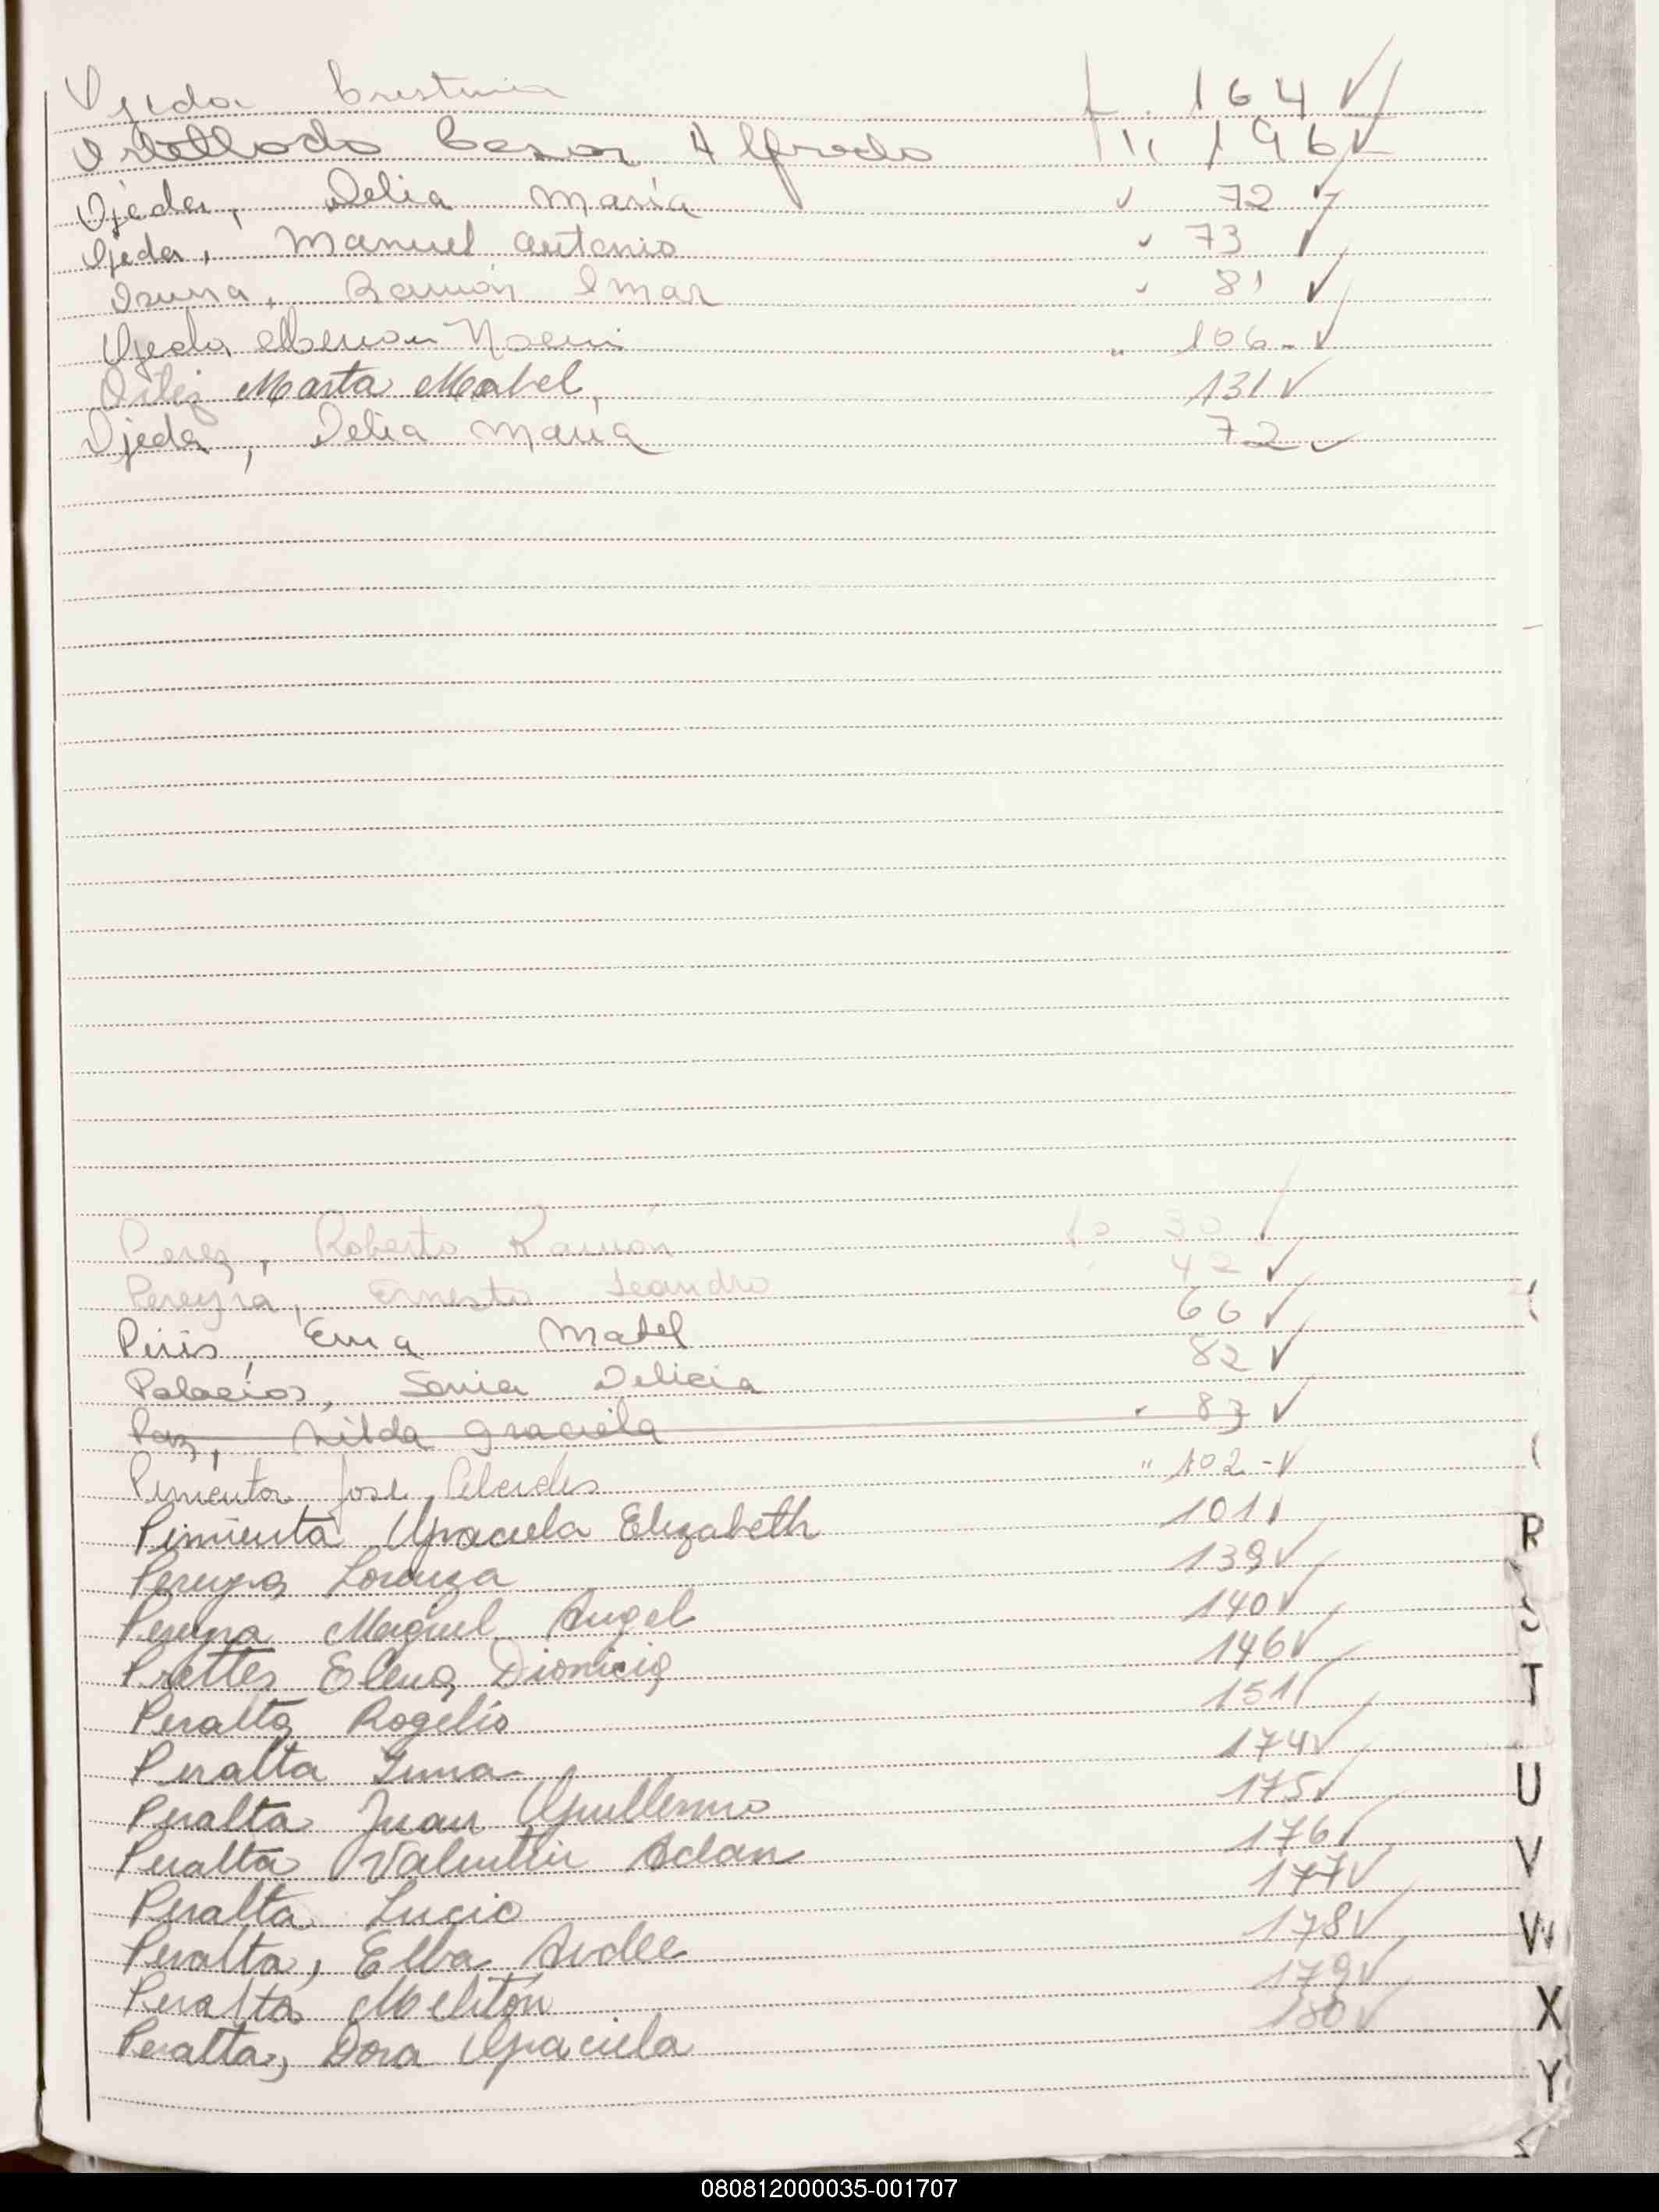 Ojeda Cristina f. 164 ✓
Cesar Alfredo " 196 ✓
Ojeda, Delia María " 72 ✓
Ojeda, Manuel Antonio " 73 ✓
Osuna, Ramón Omar " 81 ✓
Ojeda Noemi " 106- ✓
Ortiz Marta Mabel, 131 ✓
Ojeda, Delia María 72 ✓
Perez, Roberto Ramón fo 30 ✓
Pereyra, Ernesto Leandro 42 ✓
Piris, Ema Mabel 66 ✓
Palacios, Sonia Delicia 82 ✓
Paz, Nilda Graciela " 83 ✓
Pimentor José Alcides " 102 - ✓
Pimienta Graciela Elizabeth 101 ✓
Pereyra Lorenza 139 ✓
Pereyra Miguel Angel 140 ✓
Prettes Elena Dionicia 146 ✓
Peralta Rogelio 151 ✓
Peralta 174 ✓
Peralta Juan Guillermo 175 ✓
Peralta Valentin Adan 176 ✓
Peralta Lucio 177 ✓
Peralta, Elba 178 ✓
Peralta Meliton 179 ✓
Peralta, Dora Graciela 180 ✓
R
S
T
U
V
W
X
Y
Z
080812000035-001707